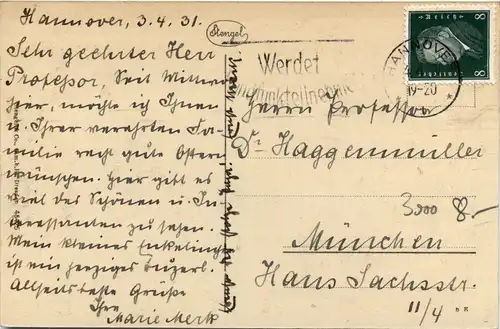 Hannover, 3.4.31.
Sehr geehrter Herr
Professor, Seit Mittwoch
hier, möchte ich Ihnen
u. Ihrer verehrten Fa-
milie recht gute Ostern
wünschen. Hier gibt es
viel des Schönen u. In-
teressanten zu sehen.
Mein kleines Enkeling
ist ein herziges Buzerl.
Allseits beste Grüße
Ihre
Marie Merk
Stengel
Werdet
Rundfunkteilnehmer
HANNOVER
19-20
8
8
Herrn Professor
Dr Haggenmüller
3900 8.-
München
Hans Sachsstr.
11/4